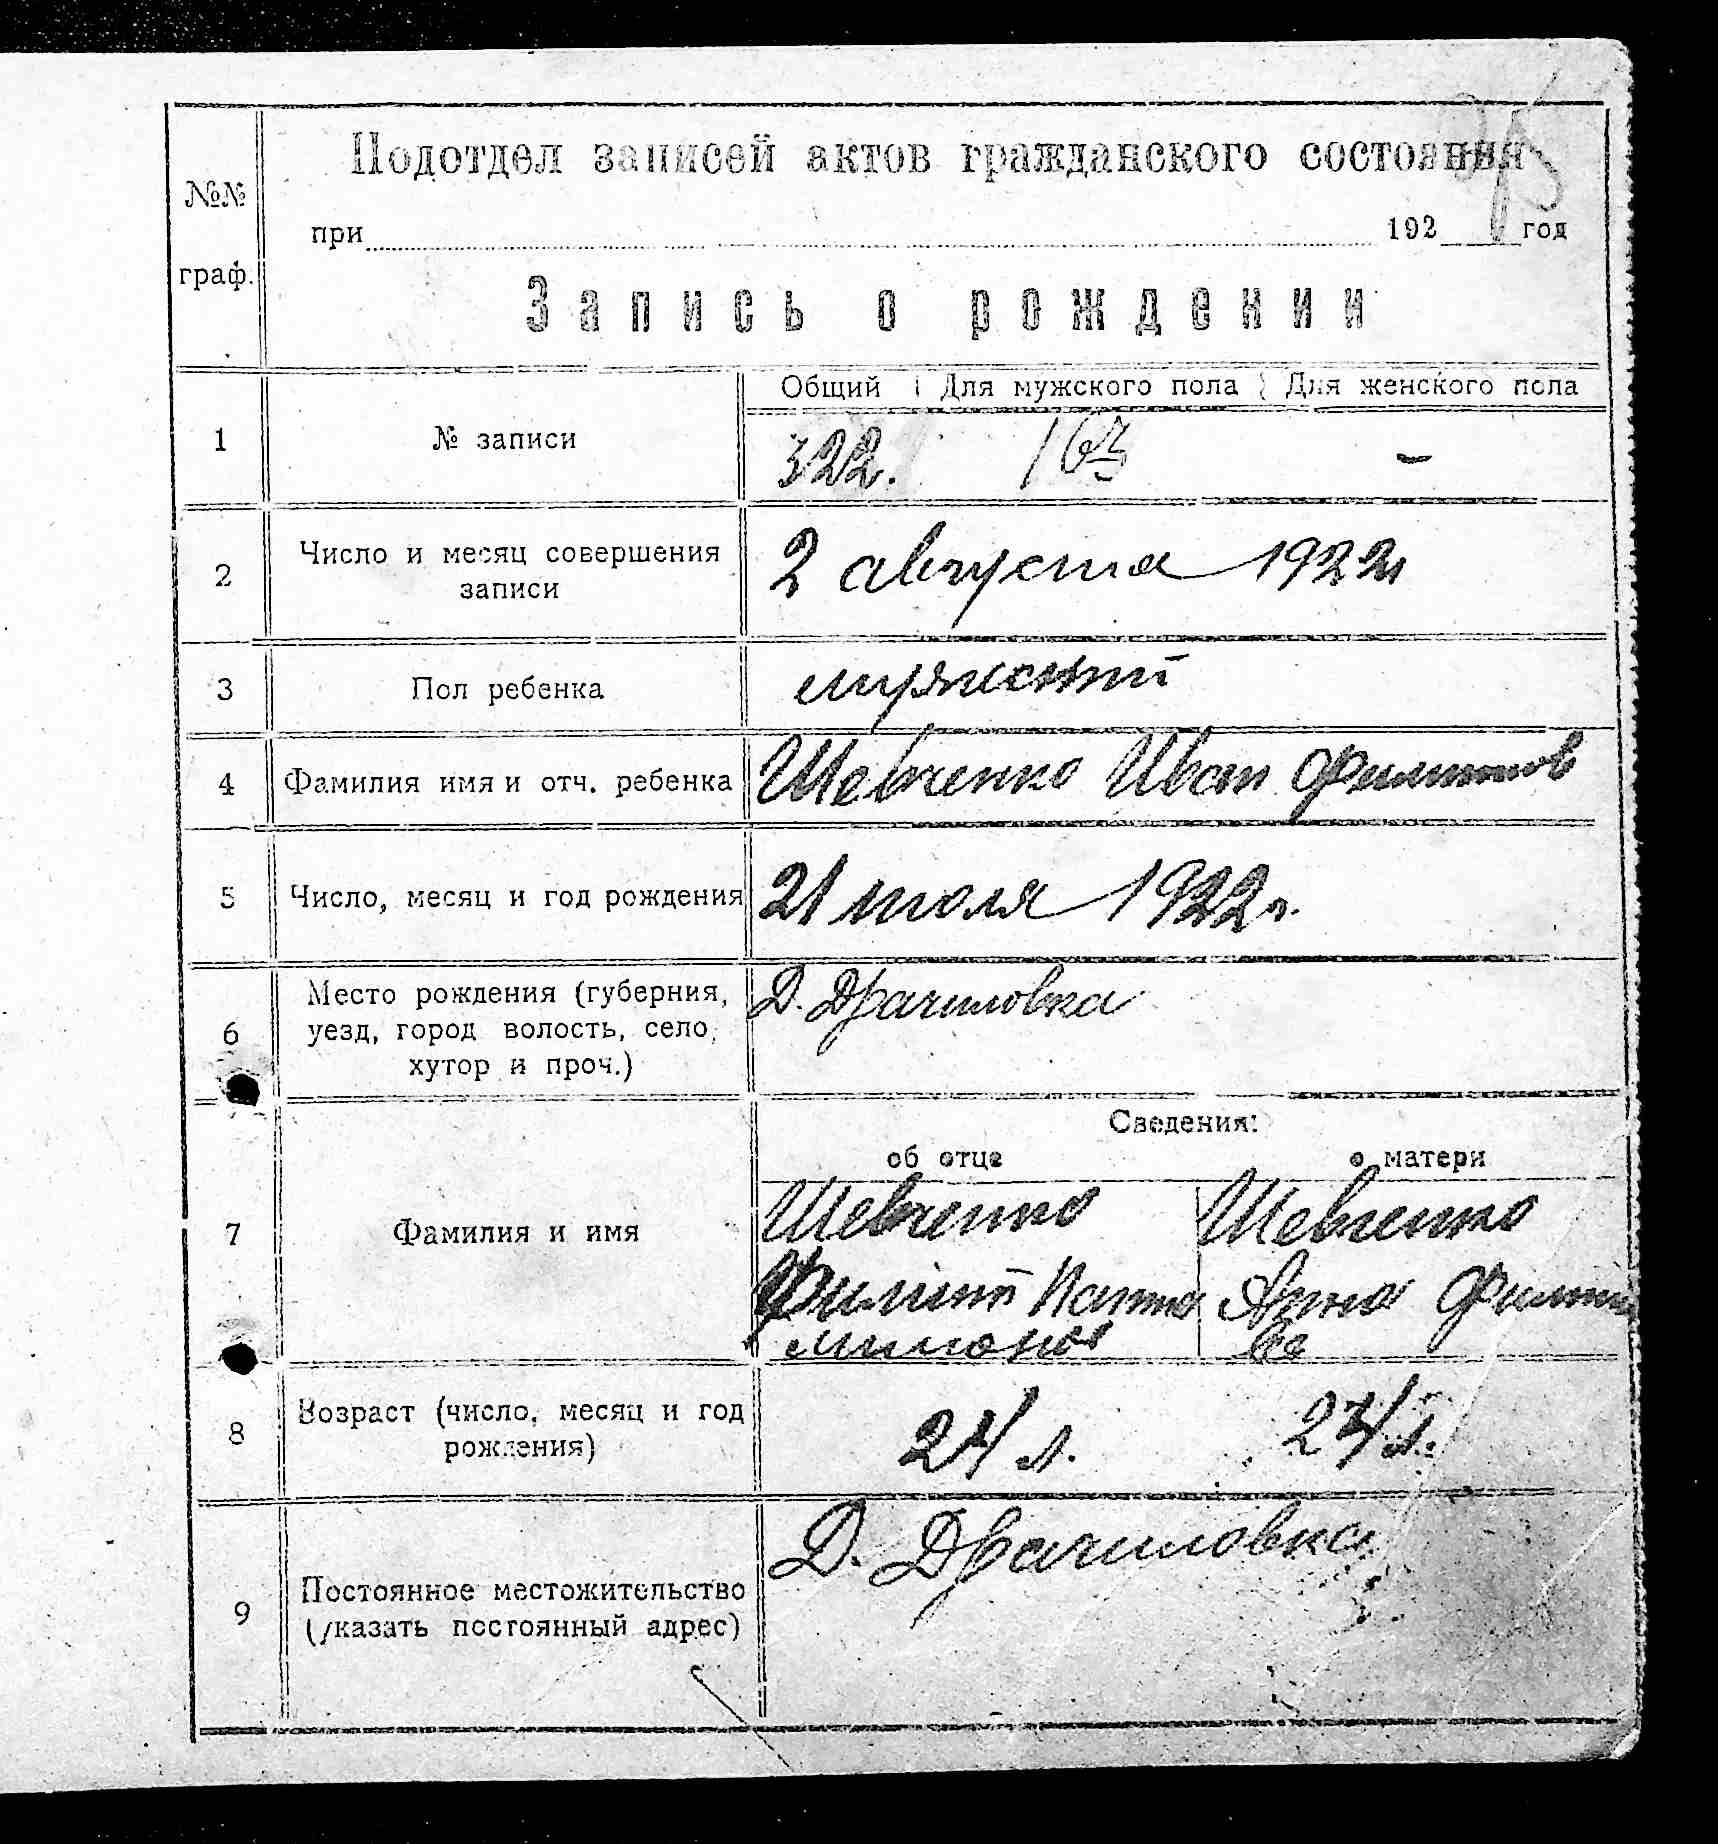 №№ граф.
Подотдел записей актов гражданского состояния
при 192 год
Запись о рождении
Общий Для мужского пола Для женского пола
1 № записи 322. 163 -
2 Число и месяц совершения
записи
2 августа 1922г
3 Пол ребенка мужский
4 Фамилия имя и отч. ребенка Шевченко Иван Филипов
5 Число, месяц и год рождения 21 июля 1922г.
6 Место рождения (губерния,
уезд, город волость, село,
хутор и проч.)
Д. Драчиловка
Сведения:
об отце о матери
7 Фамилия и имя
Шевченко Шевченко
Филипп Анна
8 Возраст (число, месяц и год
рождения)
24 л. 24 л.
9 Постоянное местожительство
(указать постоянный адрес)
Д. Драчиловка